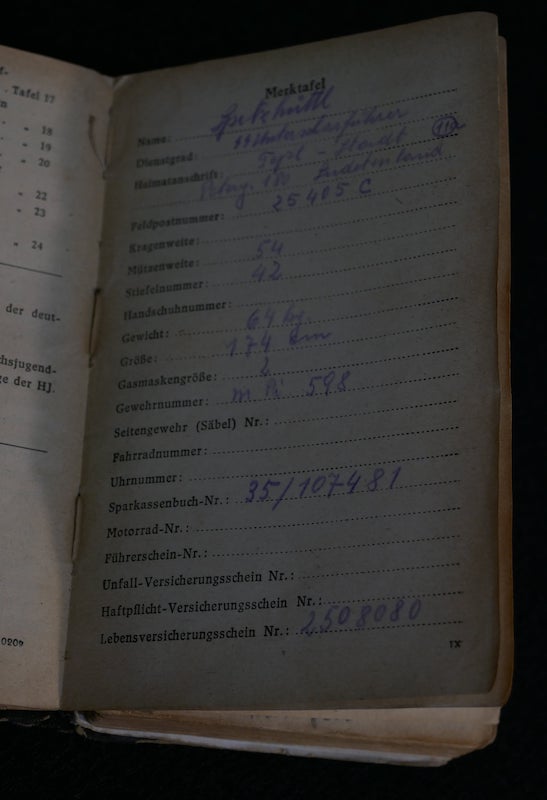 f-
. Tafel 17
n
" 18
" 19
" 20
" 22
" 23
" 24
der deut-
chsjugend-
ge der HJ.
0209
Merktafel
Name:
Dienstgrad: Unterscharführer
Heimatanschrift: Tepl - Stadt
180 Sudetenland
Feldpostnummer: 25405 C
Kragenweite:
Mützenweite: 54
Stiefelnummer: 42
Handschuhnummer:
Gewicht: 64 kg.
Größe: 174 cm
Gasmaskengröße: 2
Gewehrnummer: m Pi 598
Seitengewehr (Säbel) Nr.:
Fahrradnummer:
Uhrnummer:
Sparkassenbuch-Nr.: 35/107481
Motorrad-Nr.:
Führerschein-Nr.:
Unfall-Versicherungsschein Nr.:
Haftpflicht-Versicherungsschein Nr.:
Lebensversicherungsschein Nr.: 2508080
IX